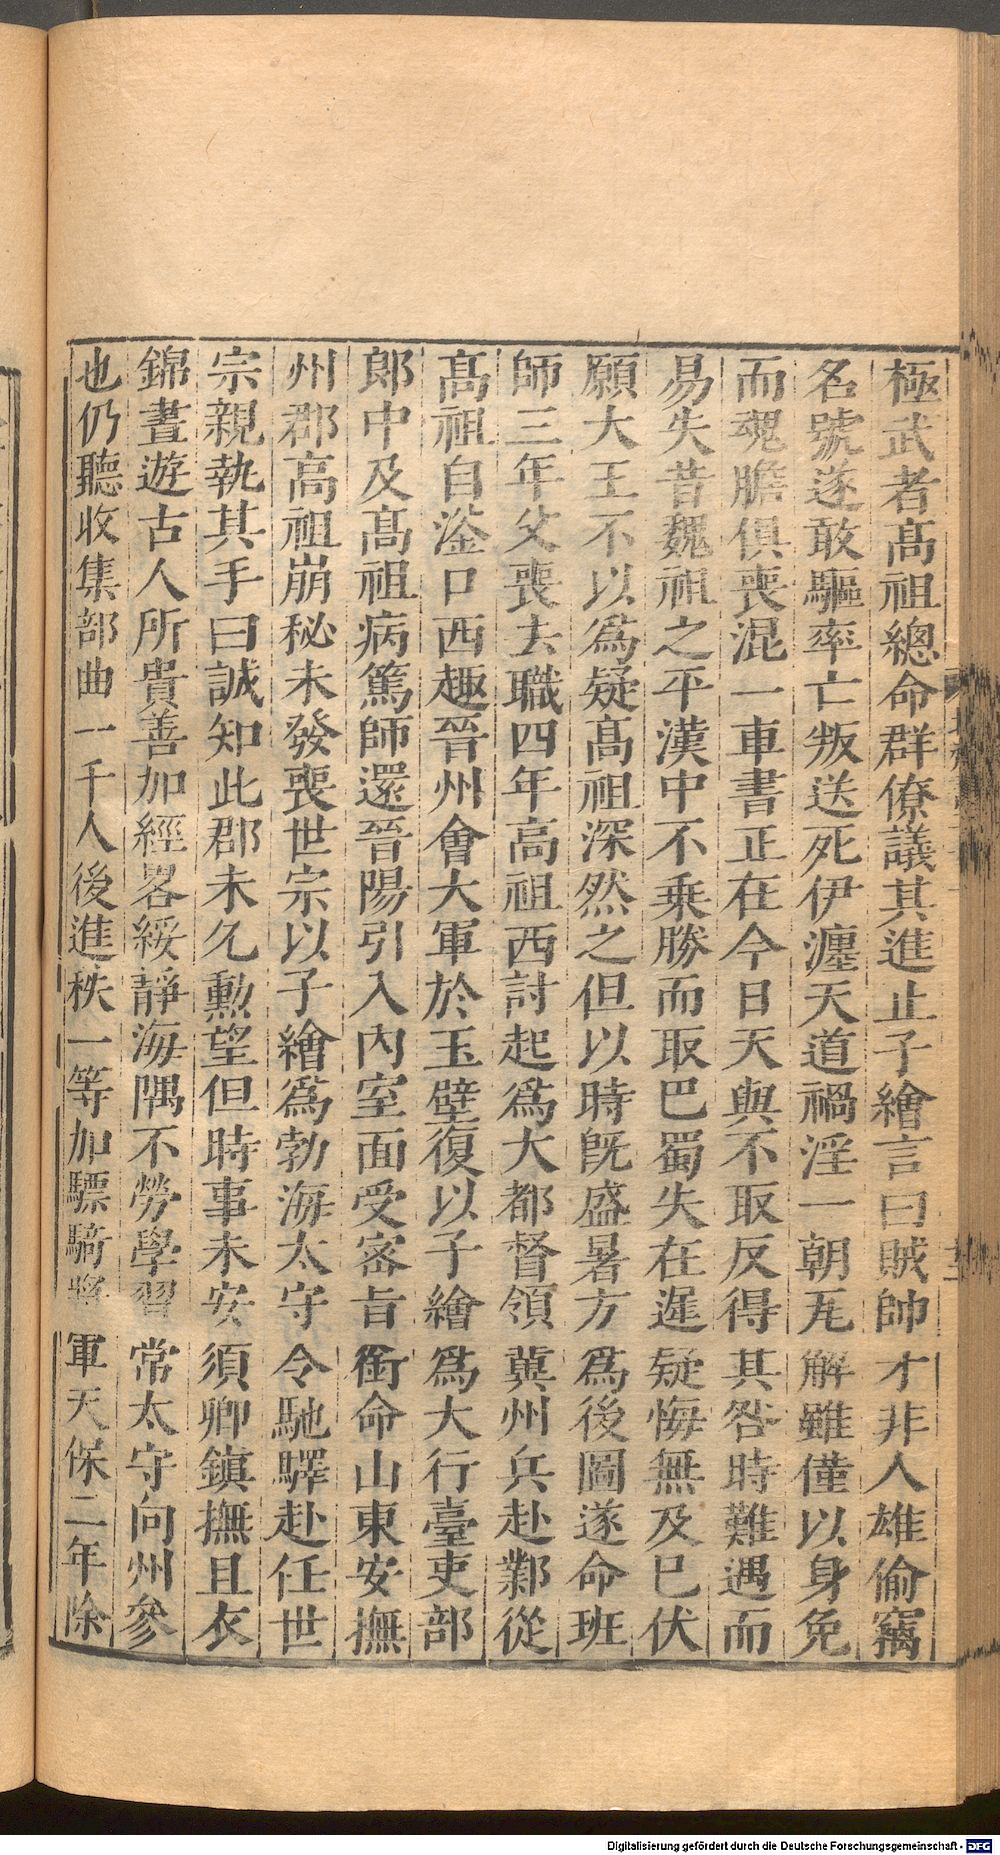 極武者髙祖總命群僚議其進止子繪言曰賊帥才非人雄偷竊
名號遂敢驅率亡叛送死伊瀍天道禍淫一朝瓦解雖僅以身免
而魂膽俱喪混一車書正在今日天與不取反得其咎時難遇而
易失昔魏祖之平漢中不乗勝而取巴蜀失在遲疑悔無及已伏
願大王不以爲疑髙祖深然之但以時旣盛暑方爲後圖遂命班
師三年父喪去職四年高祖西討起爲大都督領冀州兵赴鄴從
髙祖自滏口西趣晉州會大軍於玉壁復以子繪爲大行臺吏部
郎中及髙祖病篤師還晉陽引入內室面受密旨銜命山東安撫
州郡高祖崩秘未發喪世宗以子繪爲勃海太守令馳驛赴任世
宗親執其手曰誠知此郡未允勲望但時事未安須卿鎮撫且衣
錦晝遊古人所貴善加經畧綏靜海隅不勞學習常太守向州參
也仍聽收集部曲一千人後進秩一等加驃騎將軍天保二年除
Digitalisierung gefördert durch die Deutsche Forschungsgemeinschaft - DFG